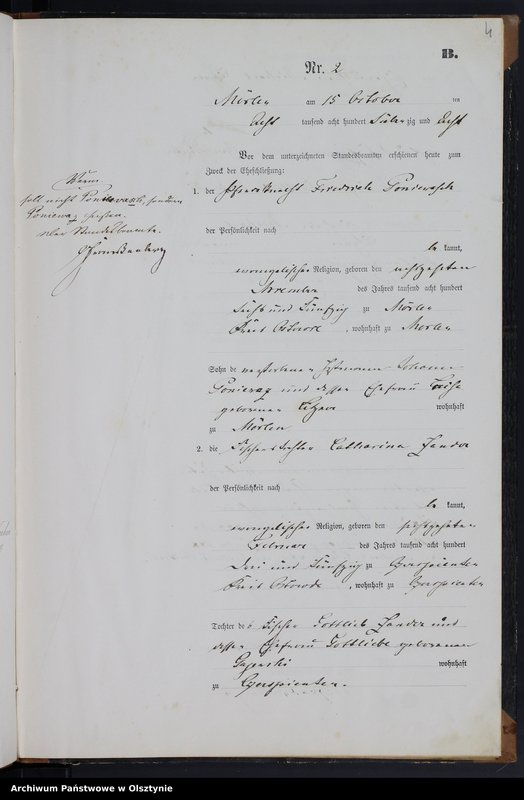 4
B.
Nr. 2
Mörlen am 15 October ten
Acht tausend acht hundert Siebenzig und Acht
Vor dem unterzeichneten Standesbeamten erschienen heute zum
Zweck der Eheschließung:
1. der Friedrich Poniewasch
der Persönlichkeit nach
be kannt,
evangelischer Religion, geboren den achtzehnten
November des Jahres tausend acht hundert
Sechs und Fünfzig zu Mörlen
Kreis Osterode, wohnhaft zu Mörlen
soll nicht Poniewasch, sondern
Poniewaz heißen.
Der Standesbeamte.
Sohn des verstorbenen Johann
Poniewaz und dessen Ehefrau
geborenen wohnhaft
zu Mörlen
2. die Fischertochter Catharina Zander
der Persönlichkeit nach
be kannt,
evangelischer Religion, geboren den
Februar des Jahres tausend acht hundert
Drei und Fünfzig zu
Kreis Osterode, wohnhaft zu
Tochter des Fischer Gottlieb Zander und
dessen Ehefrau Gottliebe geborenen
wohnhaft
zu
Archiwum Państwowe w Olsztynie